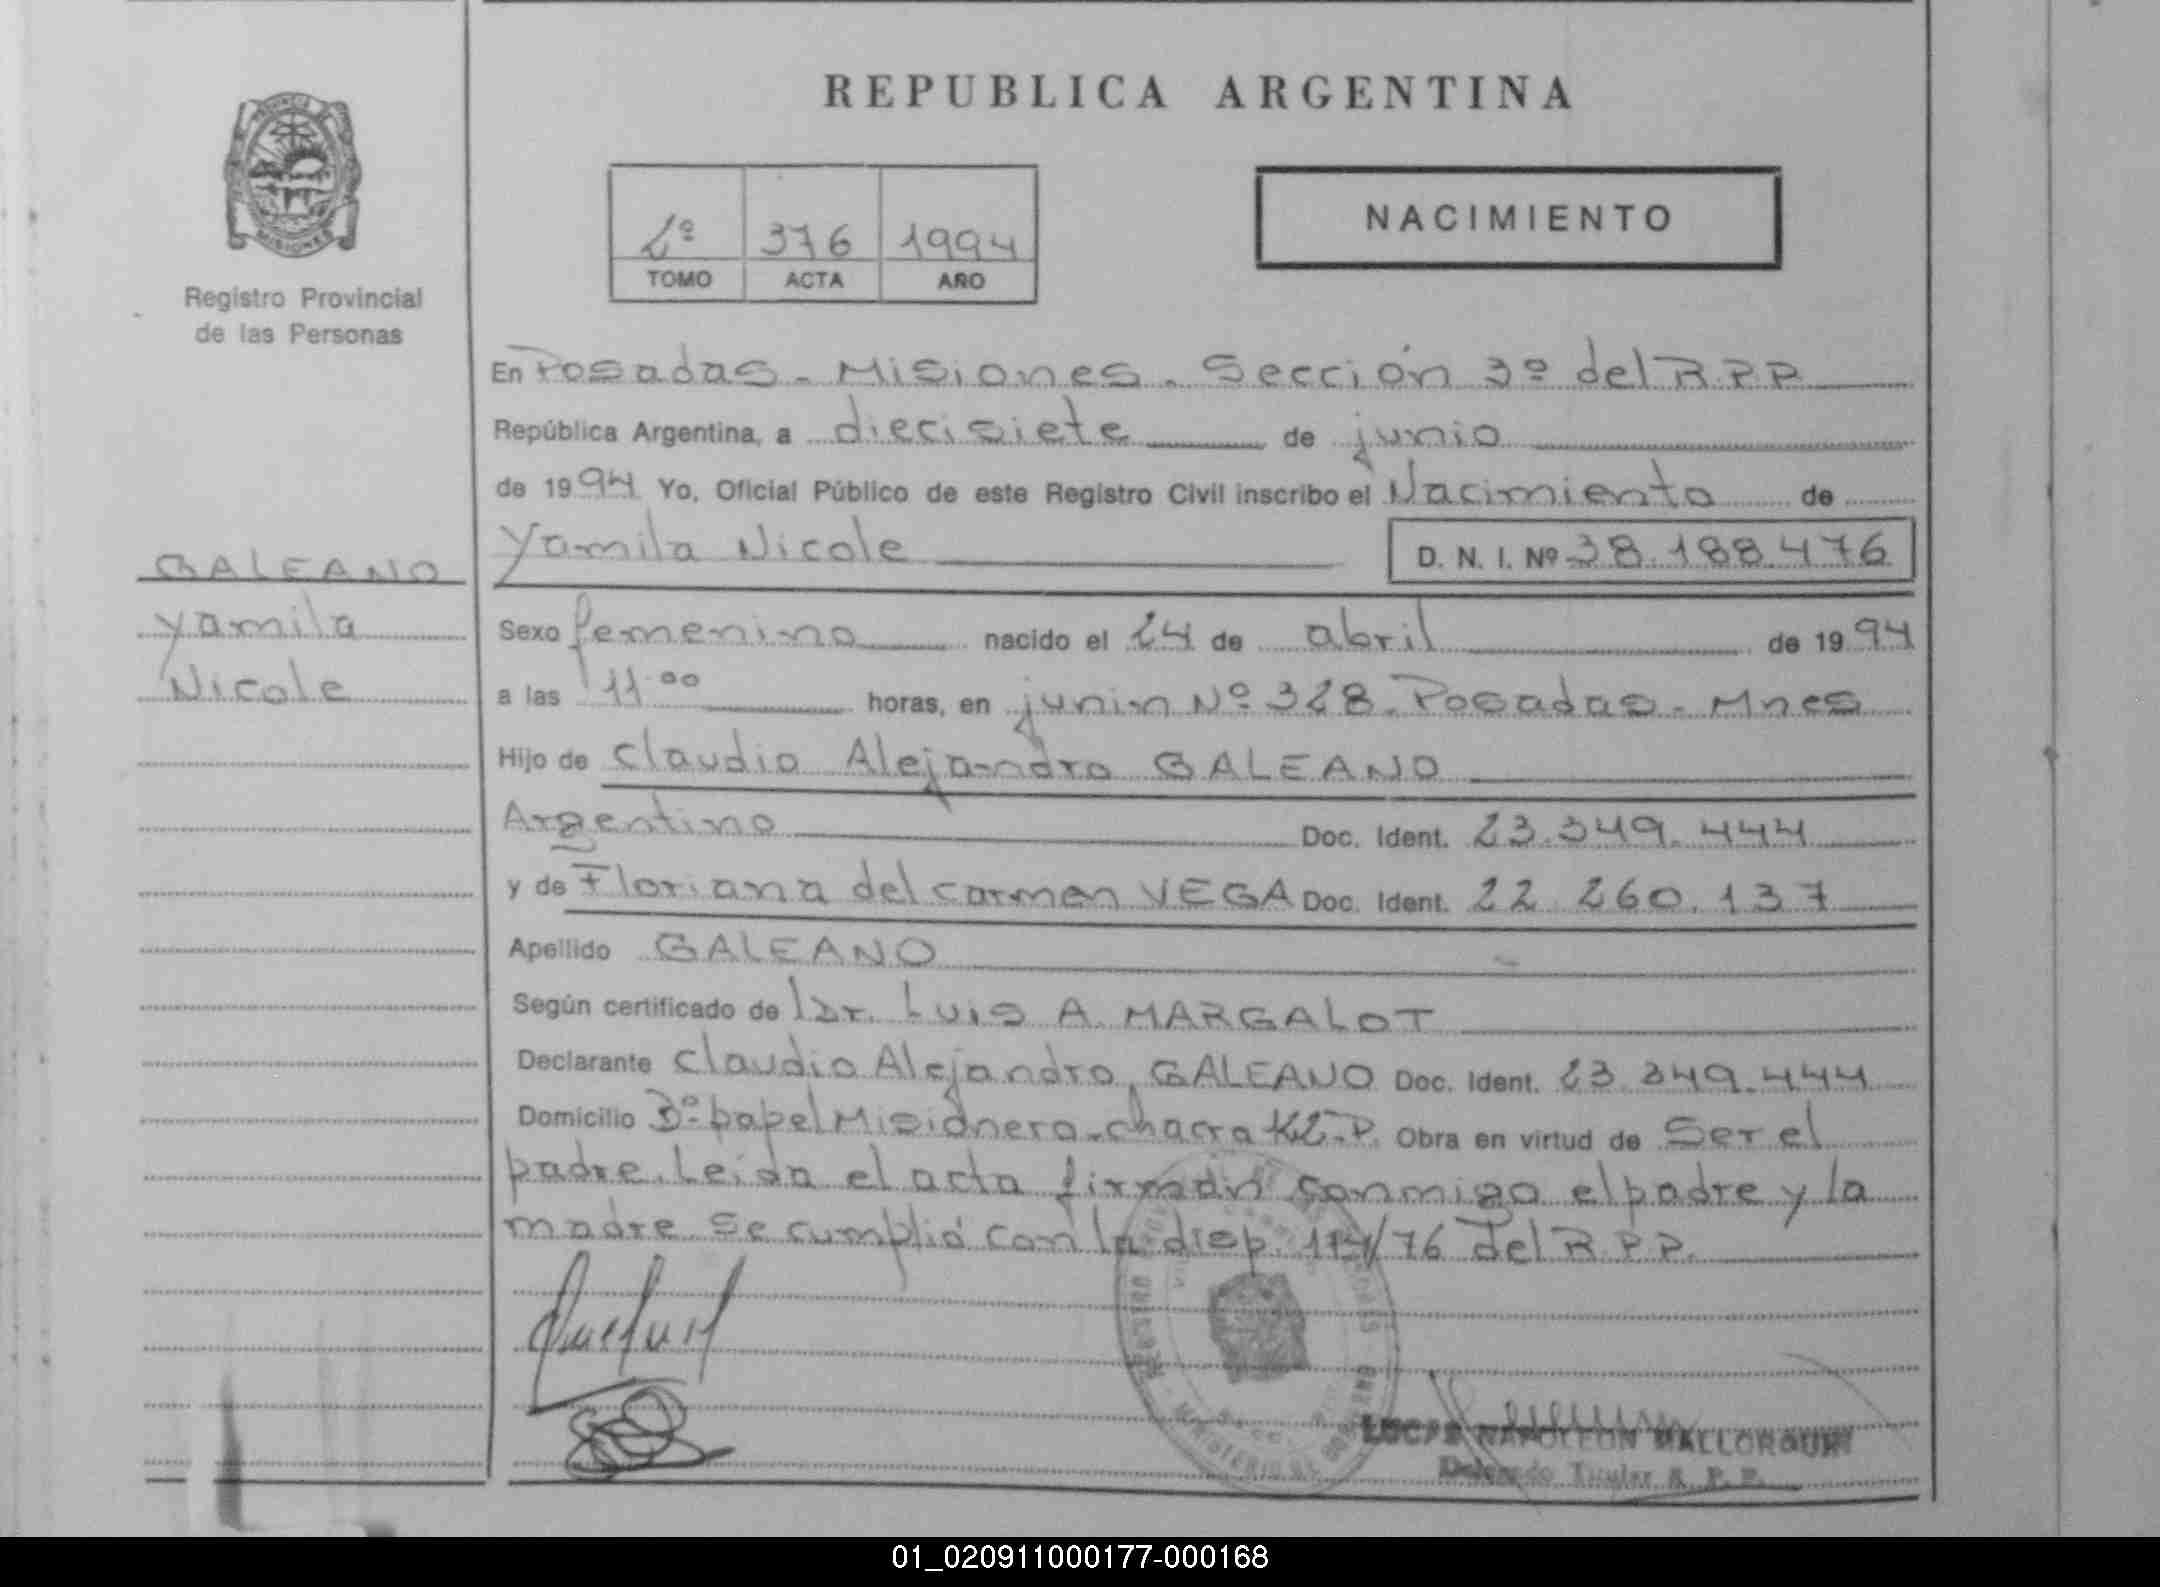 REPUBLICA ARGENTINA
PROVINCIA
MISIONES
Registro Provincial
de las Personas
2º 376 1994
TOMO ACTA AÑO
NACIMIENTO
En Posadas - Misiones. Sección 3º del R.P.P.
República Argentina, a diecisiete de junio
de 1994 Yo, Oficial Público de este Registro Civil inscribo el Nacimiento de
Yamila Nicole D. N. I. Nº 38.188.476
GALEANO
Yamila
Nicole
Sexo femenino nacido el 24 de abril de 1994
a las 11.00 horas, en junin Nº 328. Posadas - Mnes
Hijo de Claudio Alejandro GALEANO
Argentino Doc. Ident. 23.349.444
y de Floriana del Carmen VEGA Doc. Ident. 22.260.137
Apellido GALEANO
Según certificado de Dr. Luis A. MARGALOT
Declarante Claudio Alejandro GALEANO Doc. Ident. 23.349.444
Domicilio Bº papel Misionero - chacra Obra en virtud de Ser el
padre. Leida el acta firman conmigo el padre y la
madre se cumplió con la disp. /76 del R.P.P.
LUCAS NAPOLEON MALLORQUIN
Delegado Titular R. P. P.
01_020911000177-000168